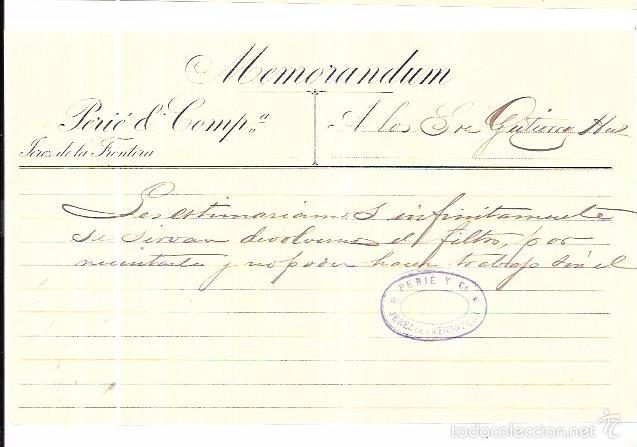 Memorandum
Perié & Comp.ª
Jerez de la Frontera
A los Sre Gutierrez Hes
Les estimariamos infinitamente
se sirvan devolvernos el filtro, por
necesitarlo y no poder hacer trabajo sin el
PERIÉ Y Cª
JEREZ DE LA FRONTERA
todocoleccion.net